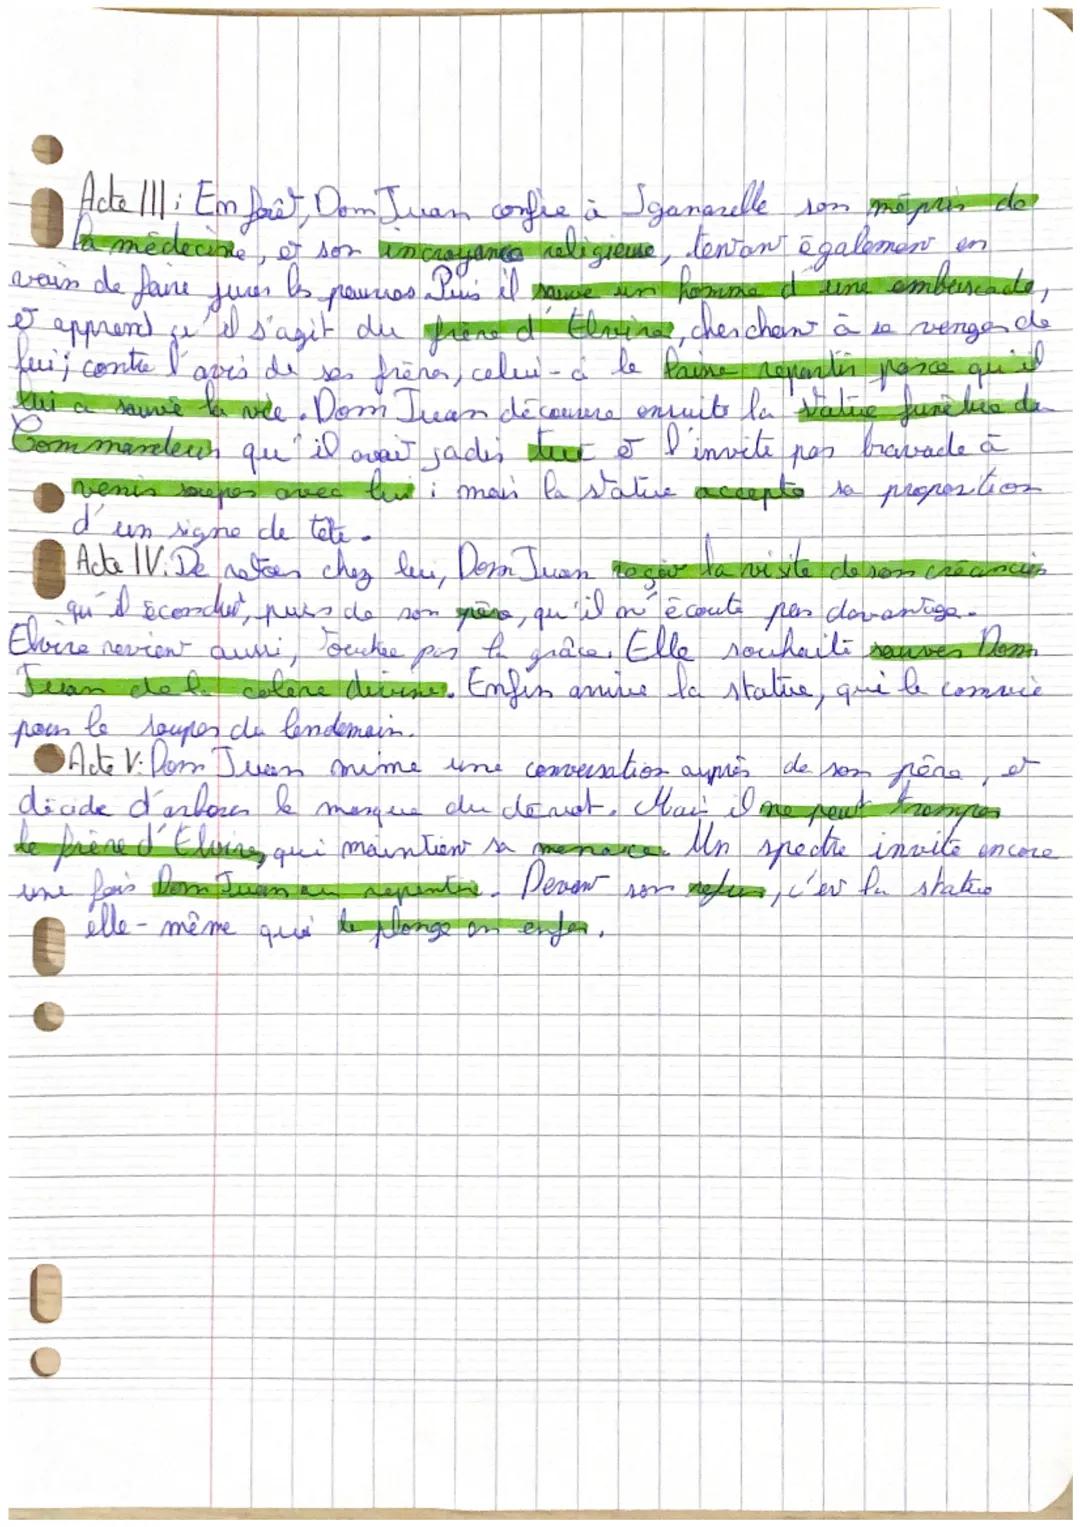 Acte III : En forêt, Dom Juan confie à Sganarelle son mépris de
la médecine, et son incroyance religieuse, tentant également en
vain de faire jurer les pauvres. Puis il sauve un homme d'une embuscade,
et apprend qu'il s'agit du frère d'Elvire, cherchant à se venger de
lui ; contre l'avis de ses frères, celui-ci le laisse repartir parce qu'il
lui a sauvé la vie. Dom Juan découvre ensuite la statue funèbre du
Commandeur qu'il avait jadis tué et l'invite par bravade à
venir souper avec lui ; mais la statue accepte sa proposition
d'un signe de tête.
Acte IV : De retour chez lui, Dom Juan reçoit la visite de son créancier
qu'il éconduit, puis de son père, qu'il n'écoute pas davantage.
Elvire revient aussi, touchée par la grâce. Elle souhaite sauver Dom
Juan de la colère divine. Enfin arrive la statue, qui le convie
pour le souper du lendemain.
Acte V : Dom Juan mime une conversation auprès de son père, et
décide d'arborer le masque du dévot. Mais il ne peut tromper
le frère d'Elvire, qui maintient sa menace. Un spectre invite encore
une fois Dom Juan au repentir. Devant son refus, c'est la statue
elle-même qui le plonge en enfer.